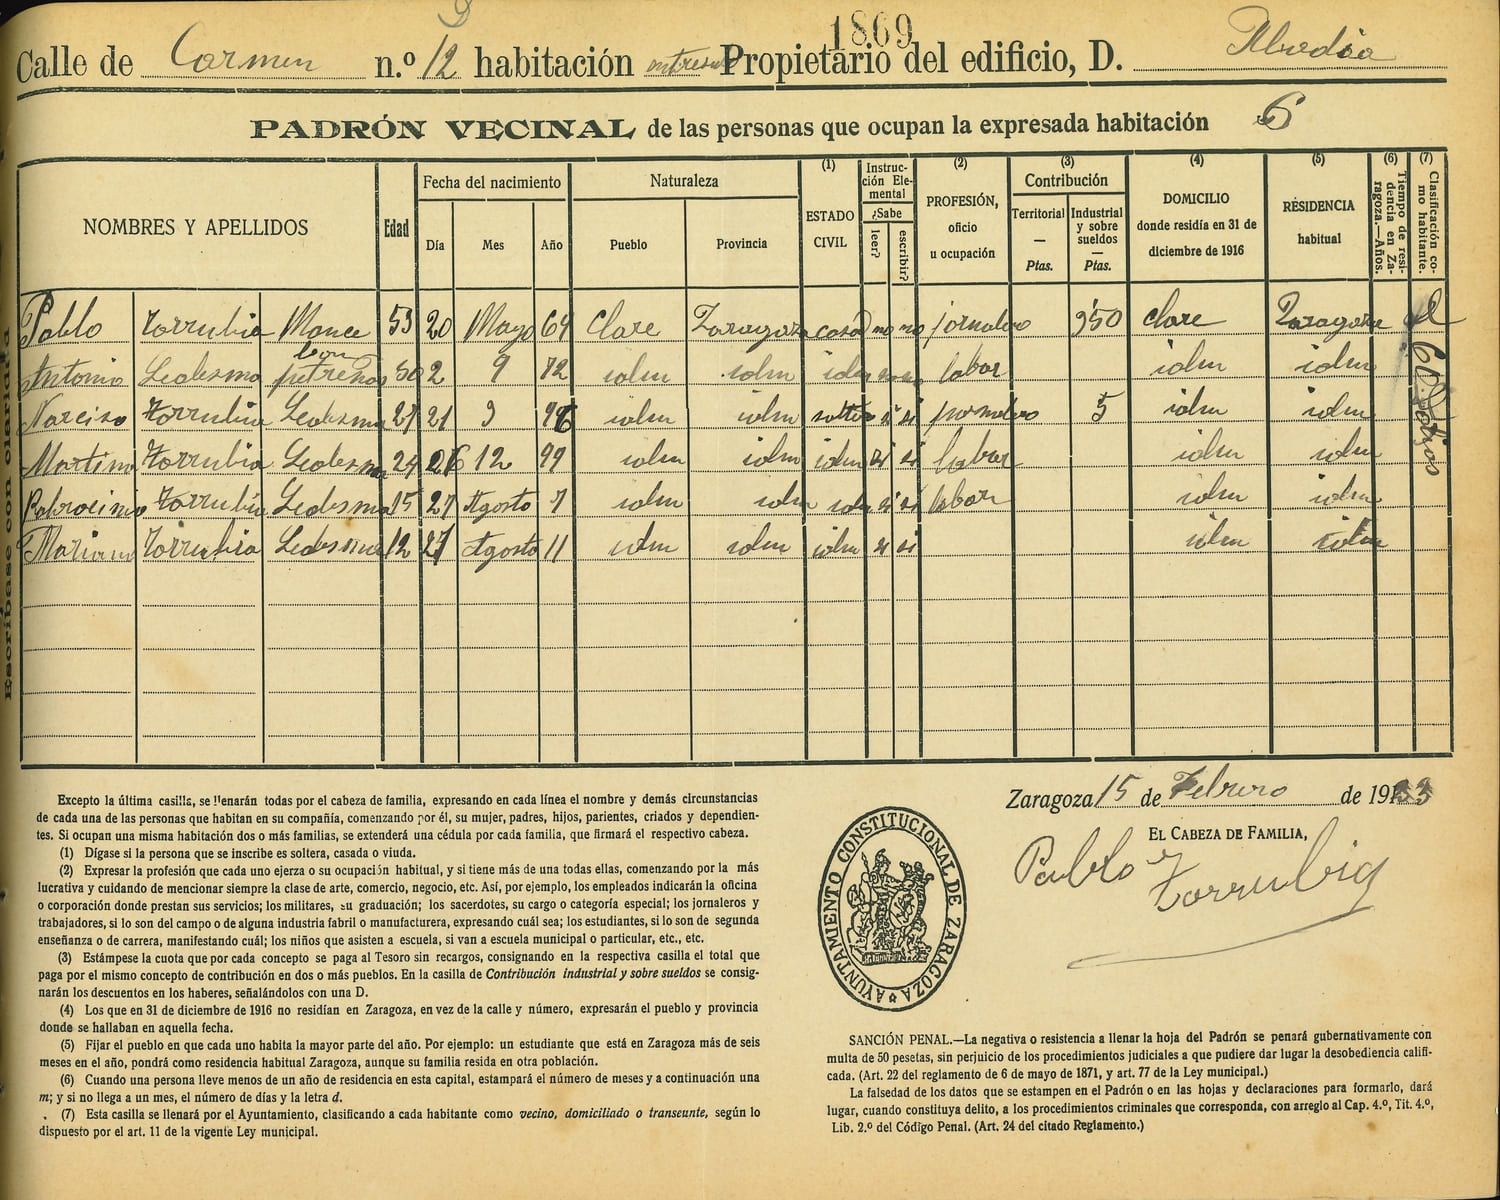 1869
Calle de Carmen n.º 12 habitación entresuelo Propietario del edificio, D.
PADRÓN VECINAL de las personas que ocupan la expresada habitación 6
NOMBRES Y APELLIDOS
Edad
Fecha del nacimiento
Día Mes Año
Naturaleza
Pueblo Provincia
(1)
ESTADO
CIVIL
Instruc-
ción Ele-
mental
¿Sabe
leer? escribir?
(2)
PROFESIÓN,
oficio
u ocupación
(3)
Contribución
Territorial
—
Ptas.
Industrial
y sobre
sueldos
—
Ptas.
(4)
DOMICILIO
donde residía en 31 de
diciembre de 1916
(5)
RESIDENCIA
habitual
(6)
Tiempo de resi-
dencia en Za-
ragoza.—Años.
(7)
Clasificación co-
mo habitante.
Pablo Torrubia Mance 53 20 Mayo 69 Clare Zaragoza casado no no jornalero 9'50 Clare Zaragoza
Antonia Ledesma 50 2 9 72 idem idem idem no no labor idem idem
Narciso Torrubia Ledesma 27 21 3 96 idem idem soltero si si jornalero 5 idem idem
Martina Torrubia Ledesma 24 26 12 99 idem idem idem si si labor idem idem
Patrocinio Torrubia Ledesma 15 27 Agosto 7 idem idem idem si si labor idem idem
Mariano Torrubia Ledesma 12 27 Agosto 11 idem idem idem si si idem idem
Escríbase con claridad
Excepto la última casilla, se llenarán todas por el cabeza de familia, expresando en cada línea el nombre y demás circunstancias
de cada una de las personas que habitan en su compañía, comenzando por él, su mujer, padres, hijos, parientes, criados y dependien-
tes. Si ocupan una misma habitación dos o más familias, se extenderá una cédula por cada familia, que firmará el respectivo cabeza.
(1) Dígase si la persona que se inscribe es soltera, casada o viuda.
(2) Expresar la profesión que cada uno ejerza o su ocupación habitual, y si tiene más de una todas ellas, comenzando por la más
lucrativa y cuidando de mencionar siempre la clase de arte, comercio, negocio, etc. Así, por ejemplo, los empleados indicarán la oficina
o corporación donde prestan sus servicios; los militares, su graduación; los sacerdotes, su cargo o categoría especial; los jornaleros y
trabajadores, si lo son del campo o de alguna industria fabril o manufacturera, expresando cuál sea; los estudiantes, si lo son de segunda
enseñanza o de carrera, manifestando cuál; los niños que asisten a escuela, si van a escuela municipal o particular, etc., etc.
(3) Estámpese la cuota que por cada concepto se paga al Tesoro sin recargos, consignando en la respectiva casilla el total que
paga por el mismo concepto de contribución en dos o más pueblos. En la casilla de Contribución industrial y sobre sueldos se consig-
narán los descuentos en los haberes, señalándolos con una D.
(4) Los que en 31 de diciembre de 1916 no residían en Zaragoza, en vez de la calle y número, expresarán el pueblo y provincia
donde se hallaban en aquella fecha.
(5) Fijar el pueblo en que cada uno habita la mayor parte del año. Por ejemplo: un estudiante que está en Zaragoza más de seis
meses en el año, pondrá como residencia habitual Zaragoza, aunque su familia resida en otra población.
(6) Cuando una persona lleve menos de un año de residencia en esta capital, estampará el número de meses y a continuación una
m; y si no llega a un mes, el número de días y la letra d.
(7) Esta casilla se llenará por el Ayuntamiento, clasificando a cada habitante como vecino, domiciliado o transeunte, según lo
dispuesto por el art. 11 de la vigente Ley municipal.
Zaragoza 15 de Febrero de 1923
EL CABEZA DE FAMILIA,
Pablo Torrubia
AYUNTAMIENTO CONSTITUCIONAL DE ZARAGOZA
SANCIÓN PENAL.—La negativa o resistencia a llenar la hoja del Padrón se penará gubernativamente con
multa de 50 pesetas, sin perjuicio de los procedimientos judiciales a que pudiere dar lugar la desobediencia califi-
cada. (Art. 22 del reglamento de 6 de mayo de 1871, y art. 77 de la Ley municipal.)
La falsedad de los datos que se estampen en el Padrón o en las hojas y declaraciones para formarlo, dará
lugar, cuando constituya delito, a los procedimientos criminales que corresponda, con arreglo al Cap. 4.º, Tit. 4.º,
Lib. 2.º del Código Penal. (Art. 24 del citado Reglamento.)